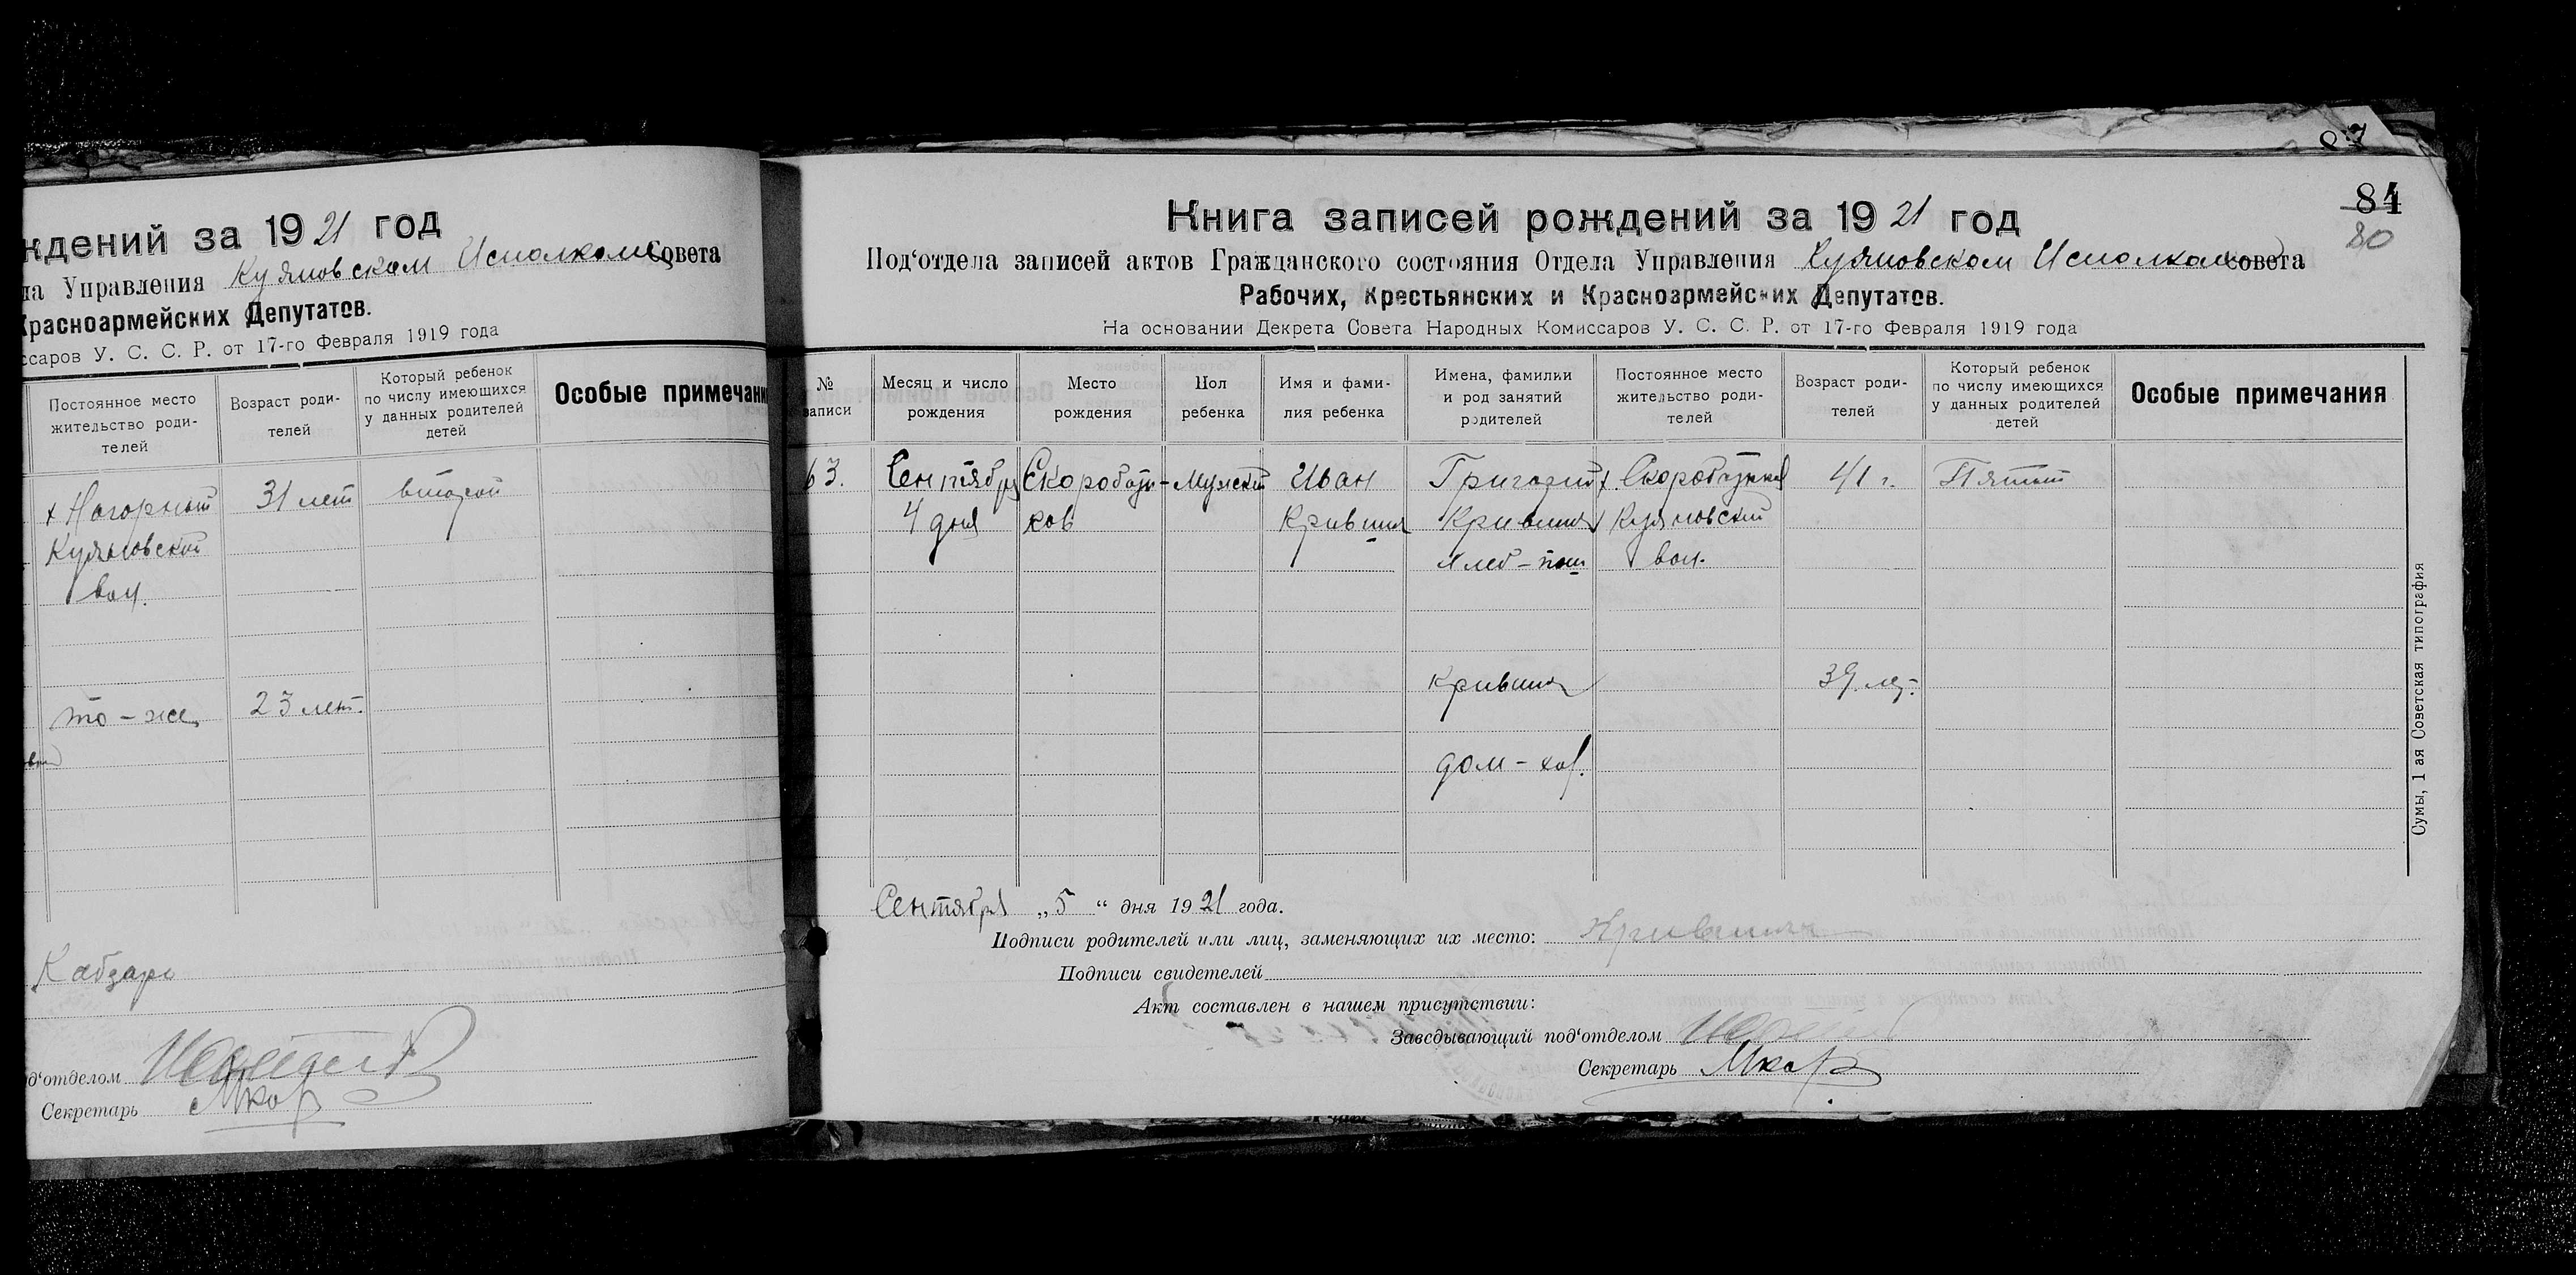 ждений за 1921 год
ла Управления Куяновском Исполкоме Совета
Красноармейских Депутатов.
ссаров У. С. С. Р. от 17-го Февраля 1919 года
Постоянное место жительство роди-телей
Возраст роди-телей
Который ребенок по числу имеющихся у данных родителей детей
Особые примечани
х Нагорный 31 лет второй
Куяновской
вол.
то-же 23 лет.
Кабзарь
д‘отделом
Секретарь
87
84
80
Книга записей рождений за 1921 год
Под‘отдела записей актов Гражданского состояния Отдела Управления Куяновском Исполкоме Совета
Рабочих, Крестьянских и Красноармейских Депутатов.
На основании Декрета Совета Народных Комиссаров У. С. С. Р. от 17-го Февраля 1919 года
№ записи
Месяц и число рождения
Место рождения
Пол ребенка
Имя и фами-лия ребенка
Имена, фамилии и род занятий родителей
Постоянное место жительство роди-телей
Возраст роди-телей
Который ребенок по числу имеющихся у данных родителей детей
Особые примечания
63. Сентября Мужской Иван Григорий 41 г. Пятый
4 дня ков Крившия Крившия Куяновской
хлеб-паш вол.
Крившия 39 ле.
дом-хоз.
Сентября „5“ дня 1921 года.
Подписи родителей или лиц, заменяющих их место:
Подписи свидетелей
Акт составлен в нашем присутствии:
Заведывающий под‘отделом
Секретарь
Сумы, 1 ая Советская типография